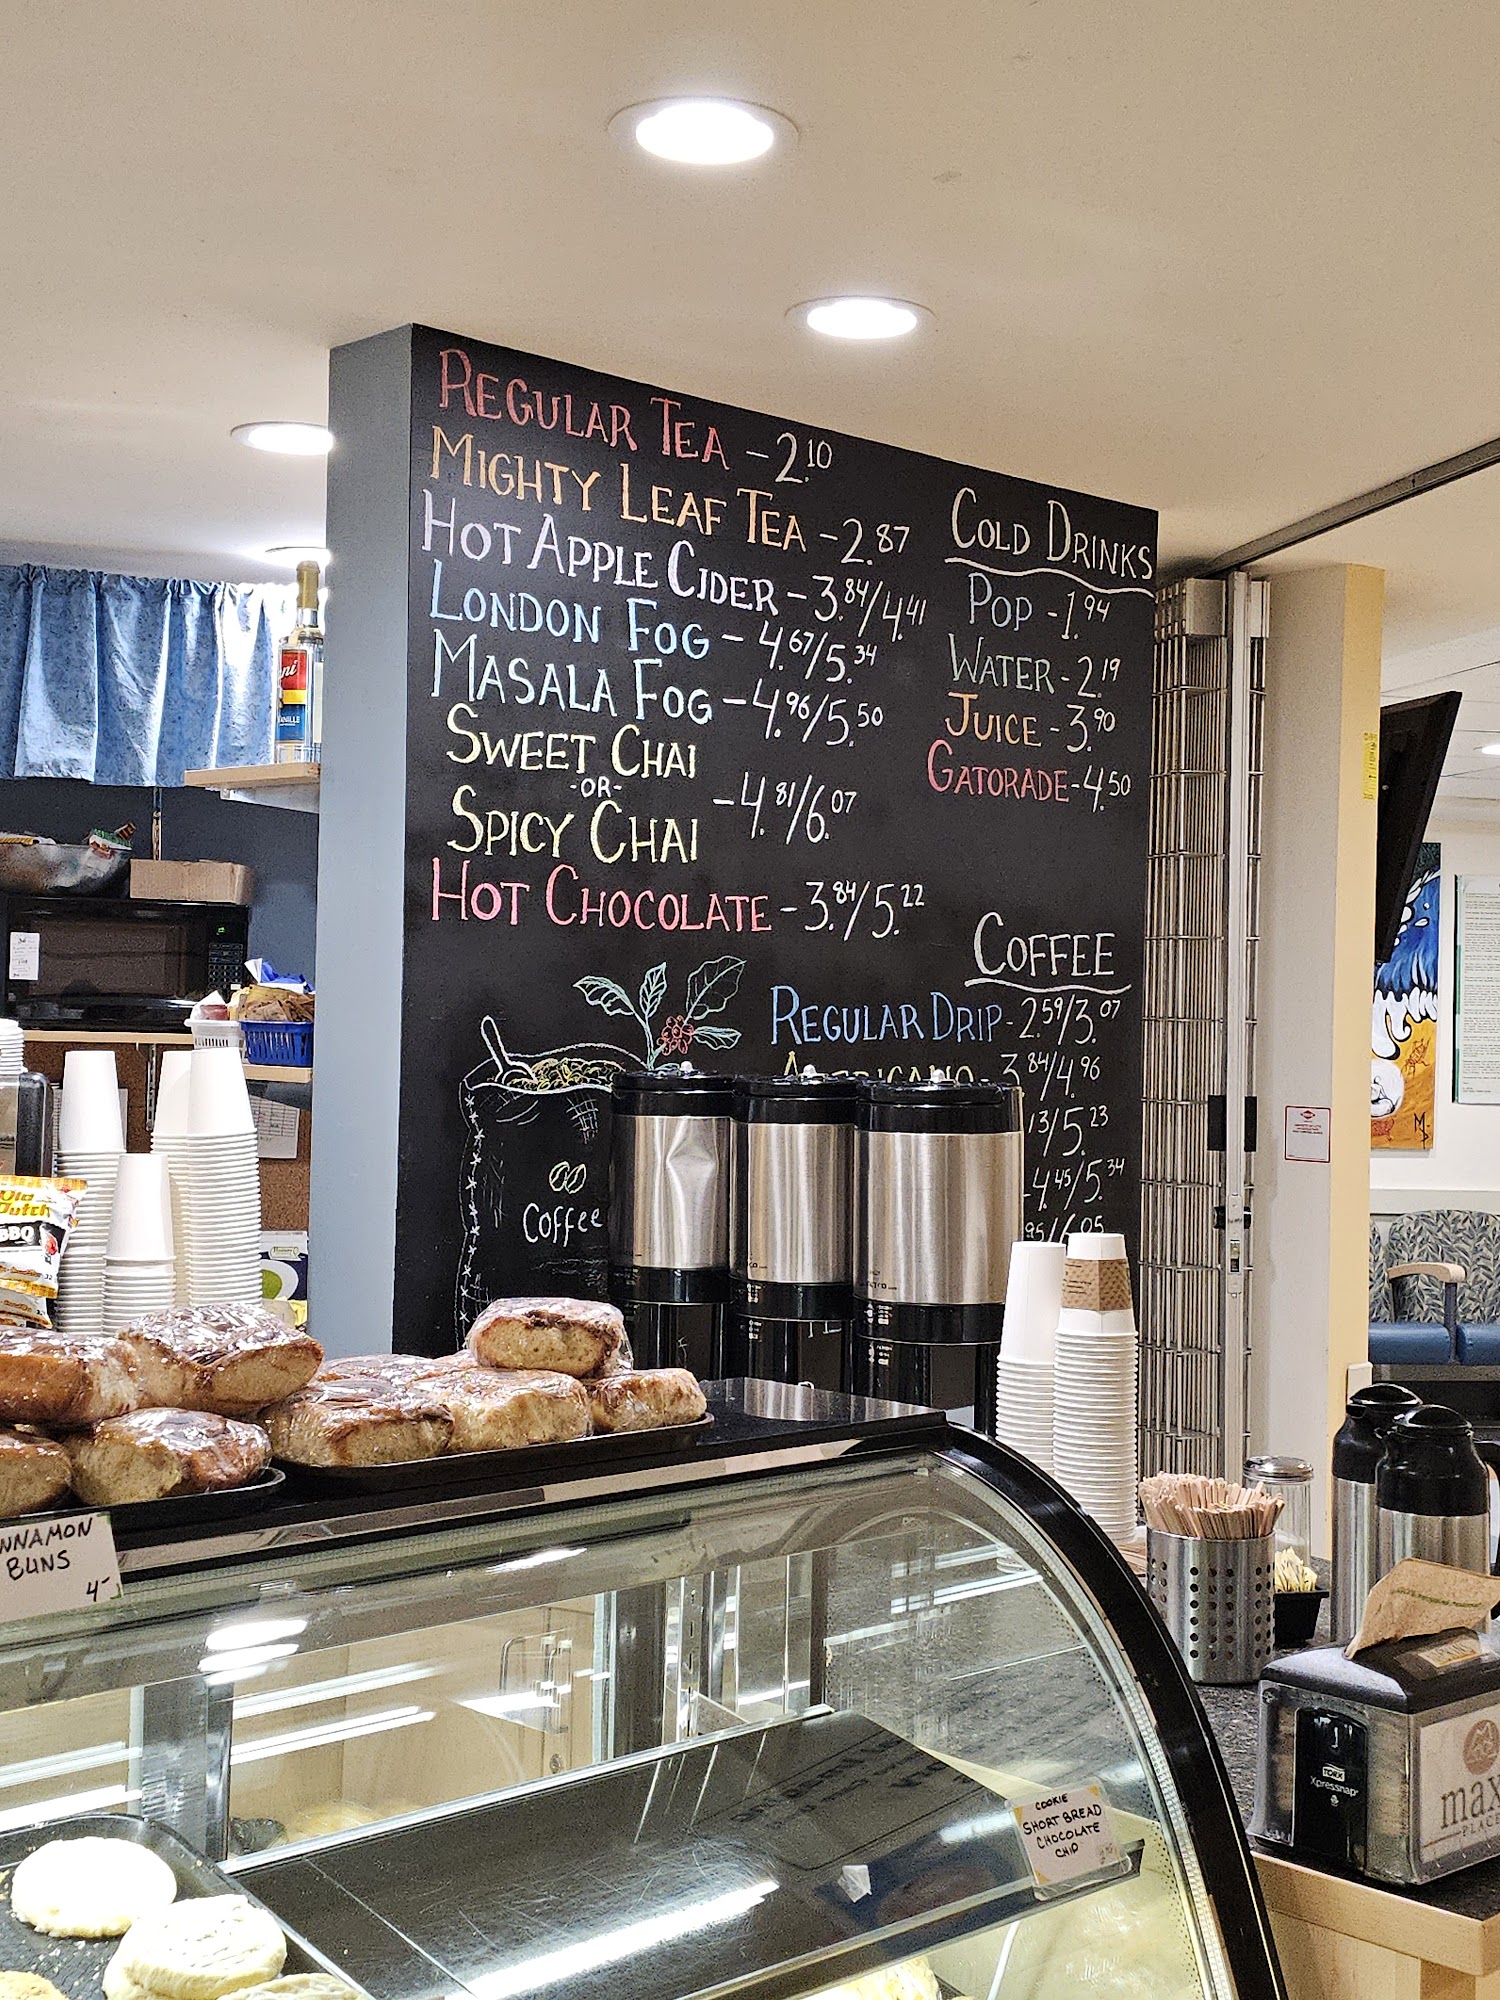 REGULAR TEA - 2.10
MIGHTY LEAF TEA - 2.87
HOT APPLE CIDER - 3.84/4.41
LONDON FOG - 4.67/5.34
MASALA FOG - 4.96/5.50
SWEET CHAI
-OR-
SPICY CHAI
- 4.81/6.07
HOT CHOCOLATE - 3.84/5.22
COLD DRINKS
POP - 1.94
WATER - 2.19
JUICE - 3.90
GATORADE - 4.50
COFFEE
REGULAR DRIP - 2.59/3.07
AMERICANO 3.84/4.96
13/5.23
- 4.45/5.34
95/6.05
Coffee
Old
Dutch
BBQ
NNAMON
BUNS
4-
COOKIE
SHORT BREAD
CHOCOLATE
CHIP
TORK
Xpressnap
max
PLACE